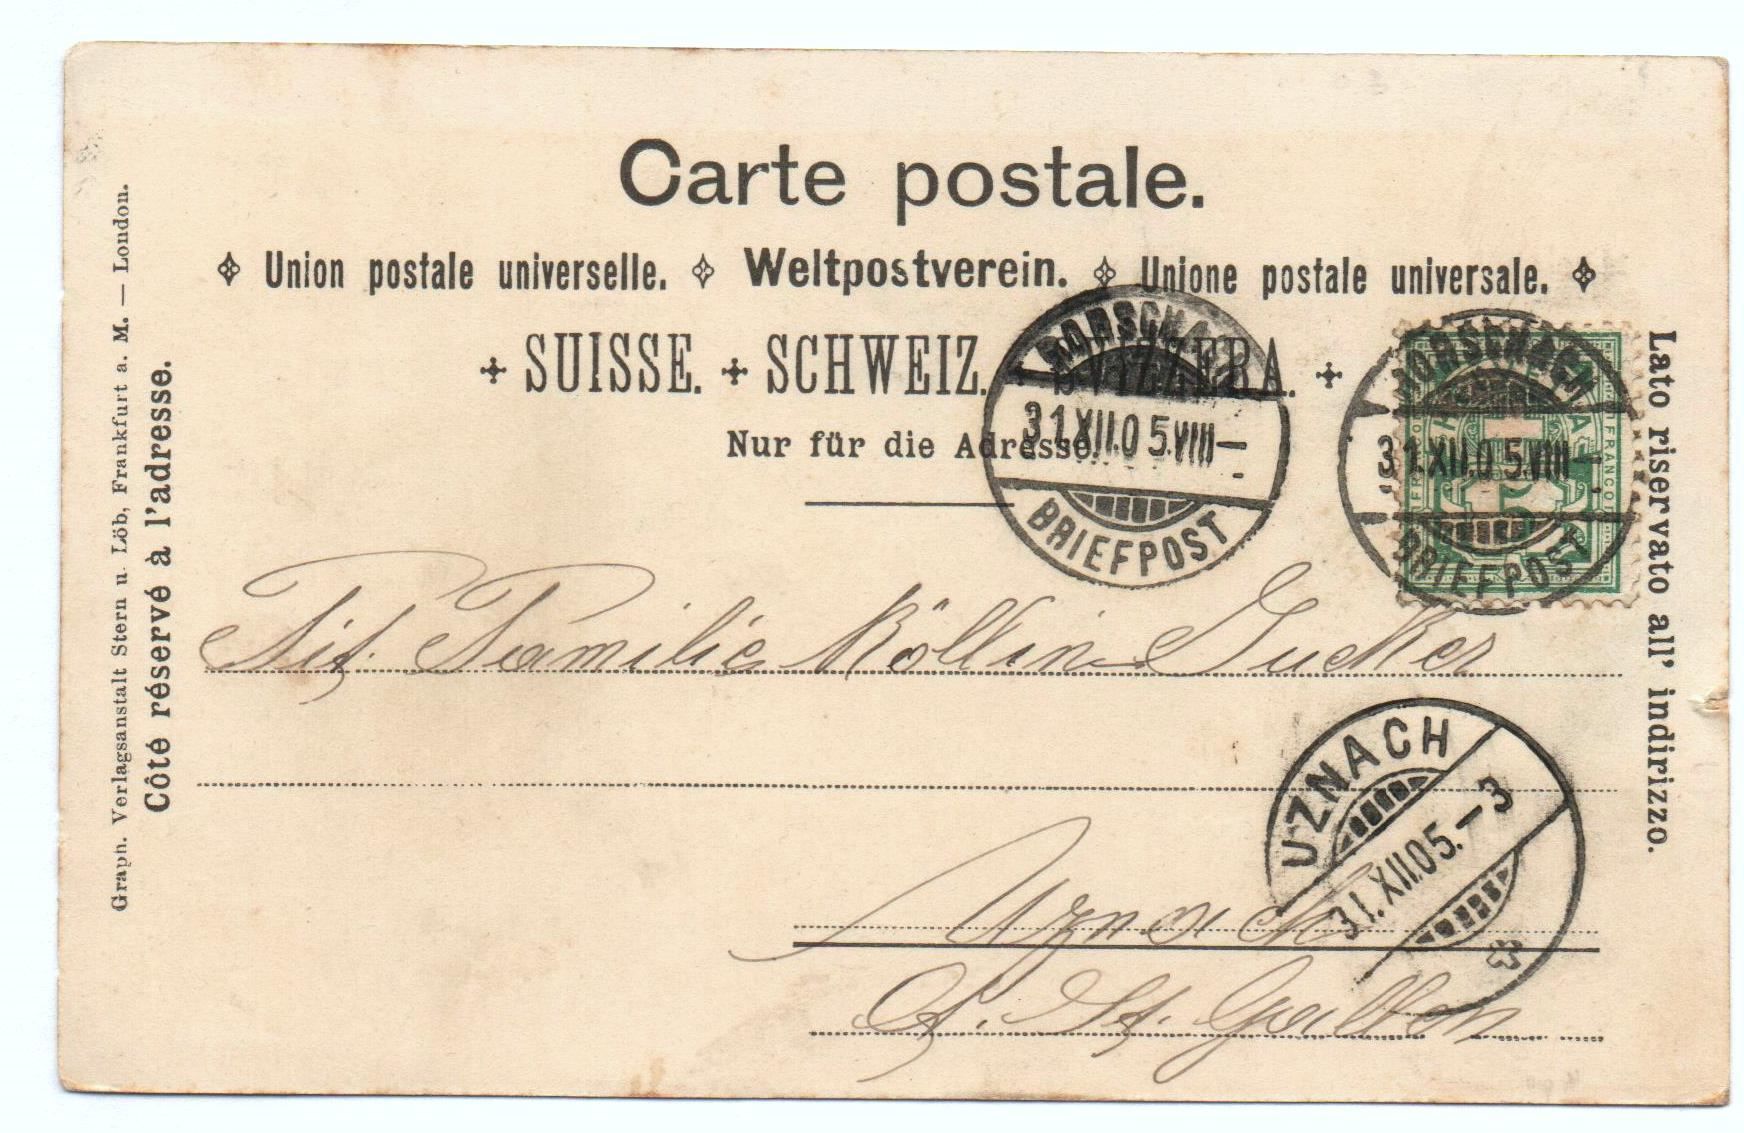 Carte postale.
Union postale universelle. Weltpostverein. Unione postale universale.
SUISSE. SCHWEIZ. SVIZZERA.
Nur für die Adresse.
Graph. Verlagsanstalt Stern u. Löb, Frankfurt a. M. — London.
Côté réservé à l'adresse.
Lato riservato all' indirizzo.
RORSCHACH
31.XII.05.VIII—
BRIEFPOST
RORSCHACH
31.XII.05.VIII—
BRIEFPOST
FRANCO
FRANCO
5
Tit. Familie Köllin
UZNACH
31.XII.05.–3
Uznach
St. Gallen